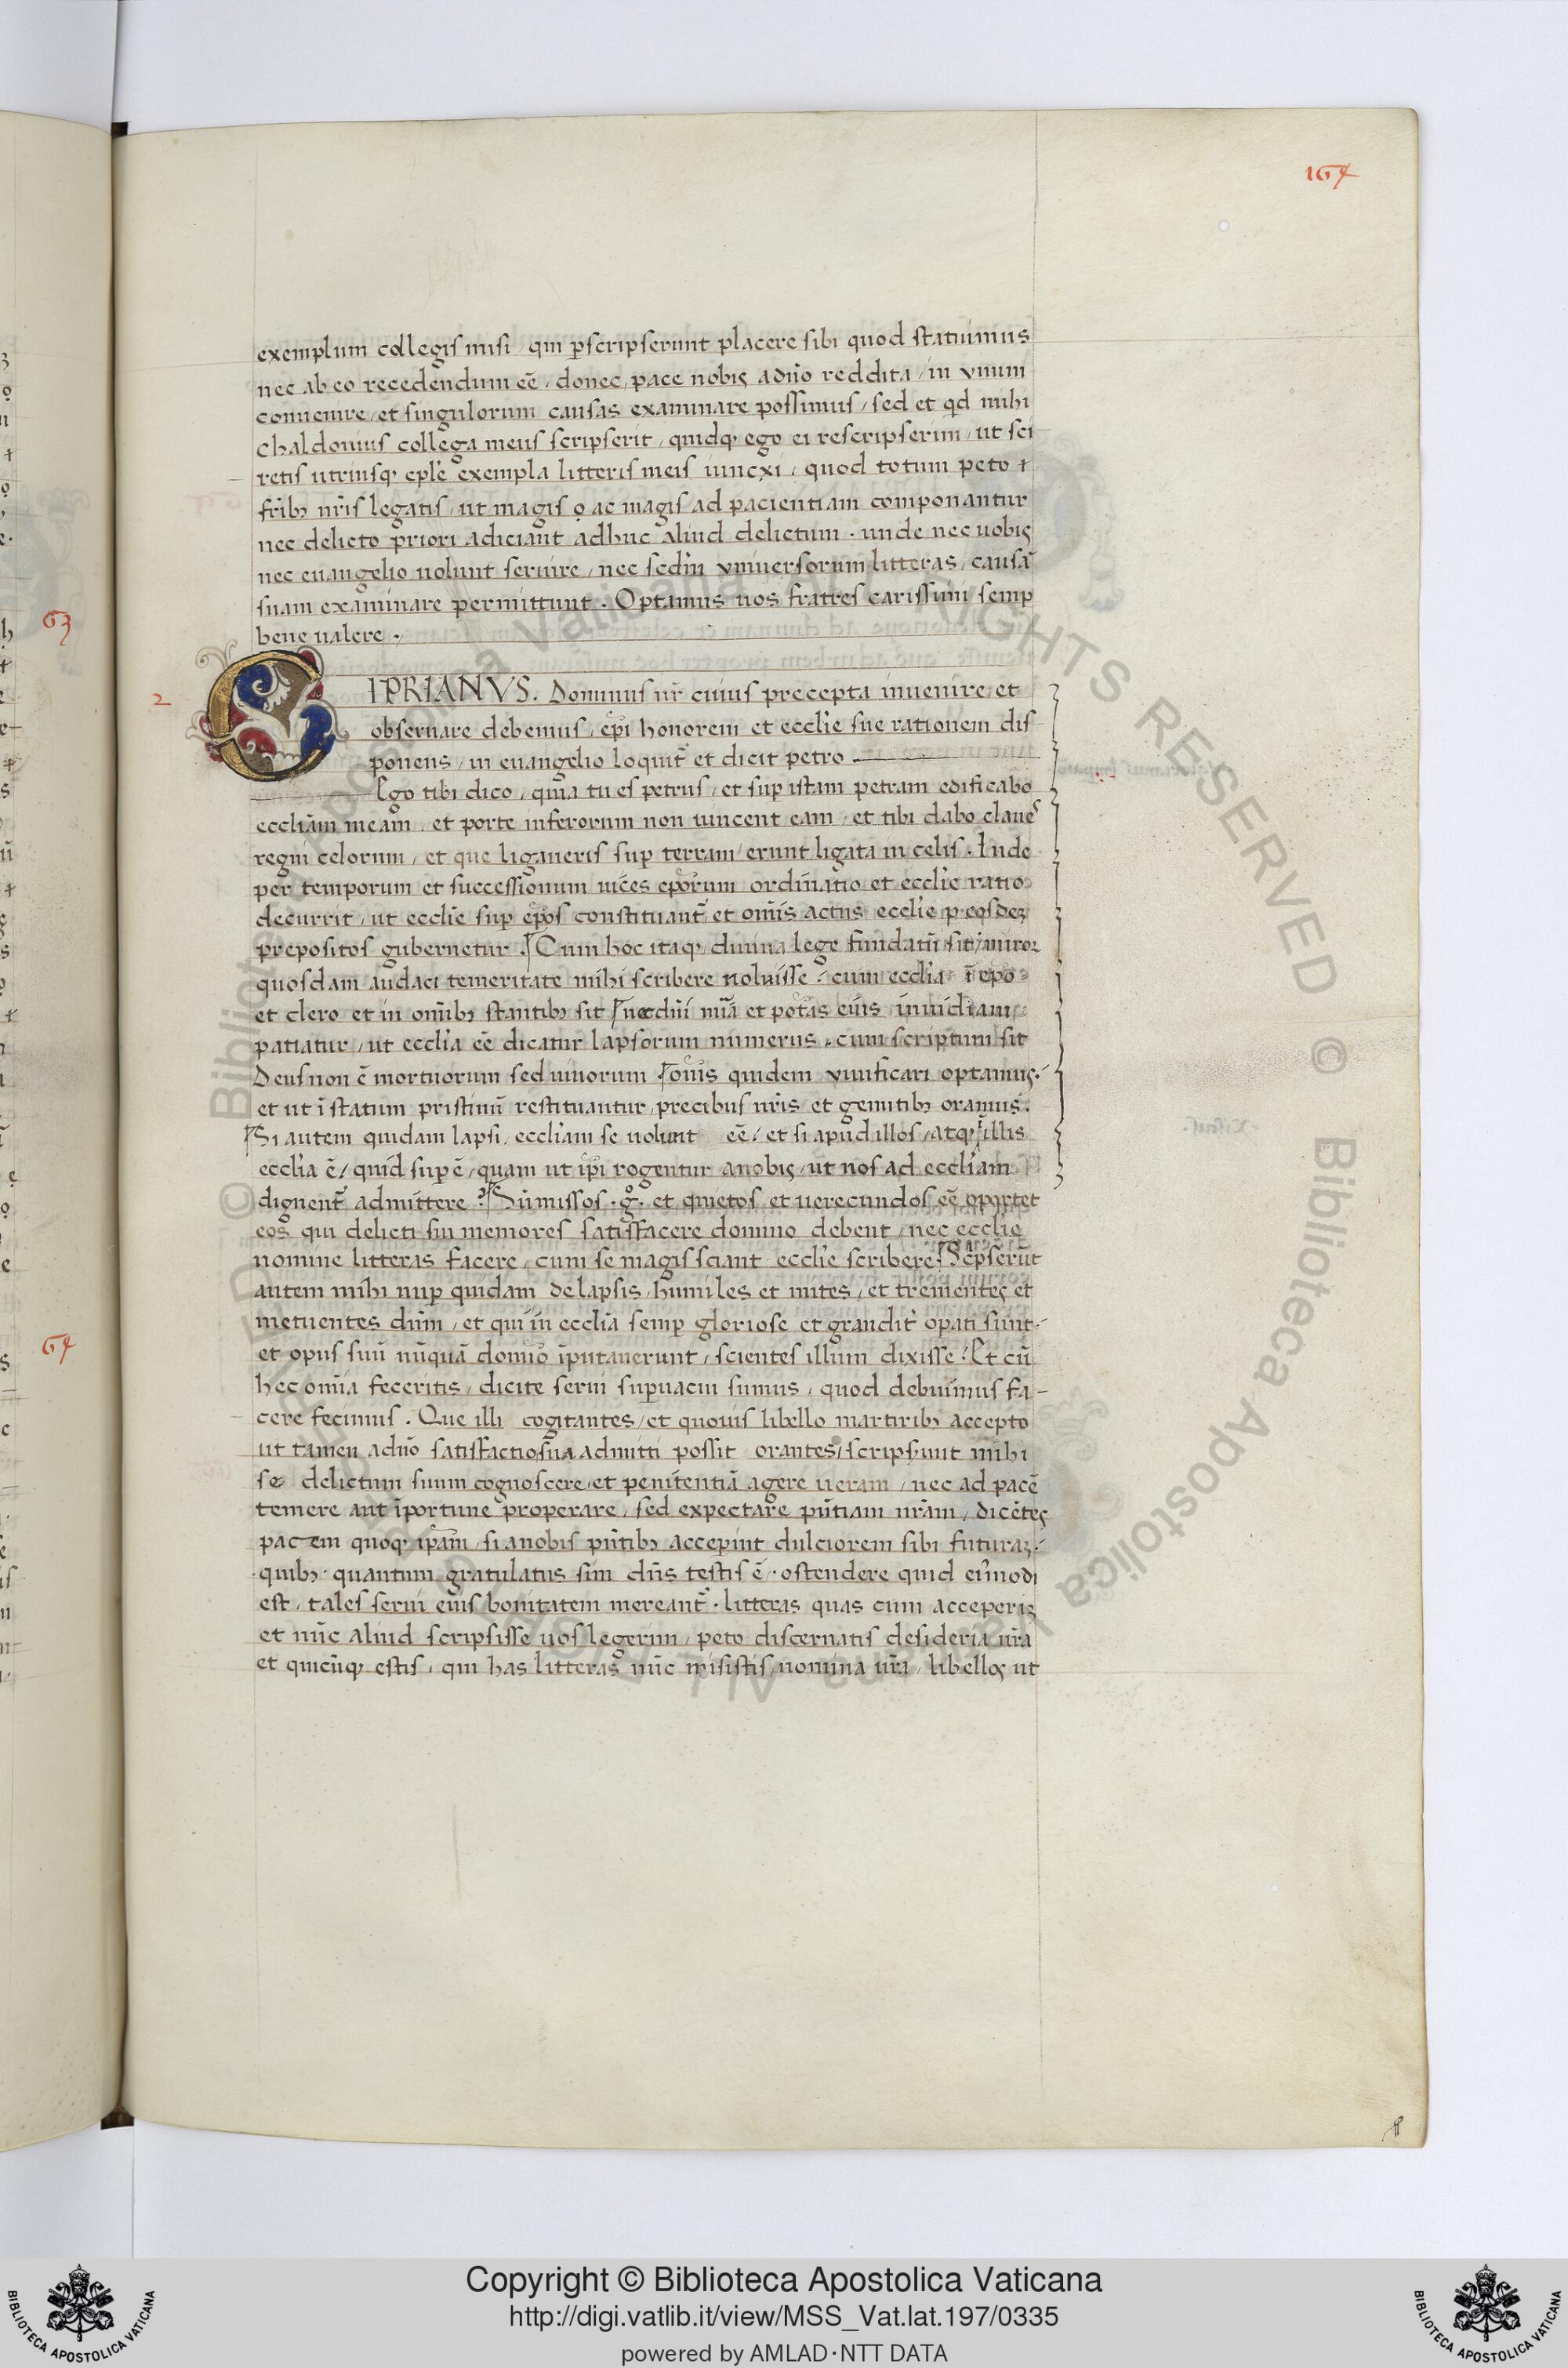 164
exemplum collegis misi, qui p̱scripserunt placere sibi quod statuimus
nec ab eo recedendum eē, donec, pace nobis a dn̄o reddita, in vnum
conuenire, et singulorum causas examinare possimus, sed et qd mihi
Chaldonius collega meus scripserit, quidq; ego ei rescripserim, ut sci
retis utriusq; epl'e exempla litteris meis iuncxi, quod totum peto
frib; nr̄is legatis, ut magis ac magis ad pacientiam componantur
nec delicto priori adiciant adhuc aliud delictum. unde nec uobis
nec euangelio uolunt seruire, nec sedm̄ vniuersorum litteras, causā
suam examinare permittunt. Optamus uos fratres carissimi semp̱
bene ualere.
63
2
CIPRIANVS. Dominus nr̄ cuius precepta inuenire et
obseruare debemus, ep̄i honorem et eccl'ie sue rationem dis
ponens, in euangelio loquit̄ et dicit petro
Ego tibi dico, qm̄a tu es petrus, et sup̱ istam petram edificabo
eccliām meam, et porte inferorum non uincent eam, et tibi dabo claues
regni celorum, et que ligaueris sup̱ terram erunt ligata in celis. Inde
per temporum et successionum uices ep̄orum ordinatio et eccl'ie ratio
decurrit, ut eccl'ie sup̱ ep̄os constituant̄ et om̄is actus eccl'ie p̱ eosdeꝫ
prepositos gubernetur. Cum hoc itaq; diuina lege fundatū sit, miror
quosdam audaci temeritate mihi scribere uoluisse, cum eccl'ia ī ep̄o
et clero et in om̄ib; stantib; sit, nec dn̄i mīa et potas eius inuidiam
patiatur, ut eccl'ia eē dicatur lapsorum numerus, cum scriptum sit
Deus non ē mortuorum sed uiuorum om̄s quidem viuificari optamus.
et ut ī statum pristinū restituantur, precibus nr̄is et gemitib; oramus.
Si autem quidam lapsi, eccliam se uolunt eē, et si apud illos, atq; ī illis
eccl'ia ē, quid sup̱ ē, quam ut ip̄i rogentur a nobis, ut nos ad eccliam
dignent̄ admittere? Sūmissos .g̊. et quietos et uerecundos eē oportet
eos qui delicti sui memores satisfacere domino debent, nec eccl'ie
nomine litteras facere, cum se magis sciant eccl'ie scribere. Scpserūt
autem mihi nup̱ quidam de lapsis, humiles et mites, et trementes et
metuentes dūm, et qui in eccl'ia semp̱ gloriose et grandit̄ op̱ati sunt.
64
et opus suū nūquā domīo īputauerunt, scientes illum dixisse. Et cū
hec om̄ia feceritis, dicite serui sup̱uacui sumus, quod debuimus fa-
cere fecimus. Que illi cogitantes, et quouis libello martirib; accepto
ut tamen a dn̄o satisfactio sua admitti possit orantes, scripserunt mihi
se delictum suum cognoscere et penitentiā agere ueram, nec ad pacē
temere aut īportune properare, sed expectare pn̄tiam nr̄am, dicētes
pacem quoq; ip̄am, si a nobis pn̄tib; accep̱int dulciorem sibi futuraꝫ.
quib; quantum gratulatus sim dn̄s testis ē. ostendere quid eīmodi
est, tales serui eius bonitatem mereant̄. litteras quas cum acceperiꝫ
et nūc aliud scripsisse uos legerim, peto discernatis desideria ur̄a
et quicūq; estis, qui has litteras nūc misistis, nomina ur̄a, libellos ut
© Biblioteca Apostolica Vaticana ALL RIGHTS RESERVED © Biblioteca Apostolica Vaticana ALL RIGHTS RESERVED
BIBLIOTECA APOSTOLICA VATICANA
Copyright © Biblioteca Apostolica Vaticana
http://digi.vatlib.it/view/MSS_Vat.lat.197/0335
powered by AMLAD·NTT DATA
BIBLIOTECA APOSTOLICA VATICANA